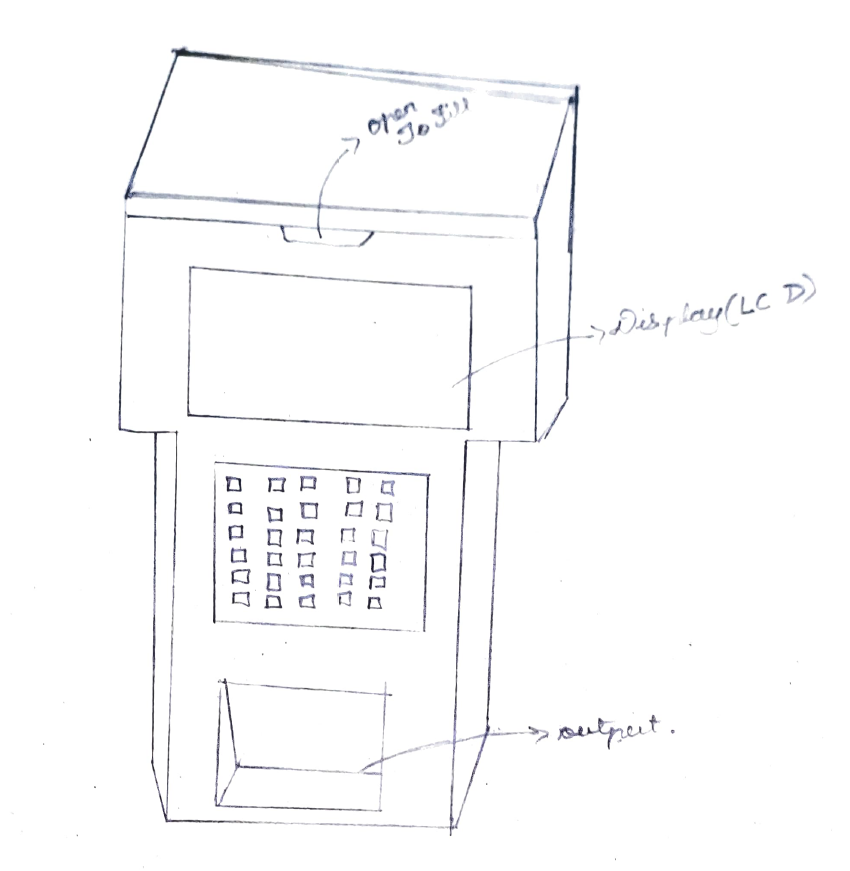 open
To fill
Display(LCD)
output.